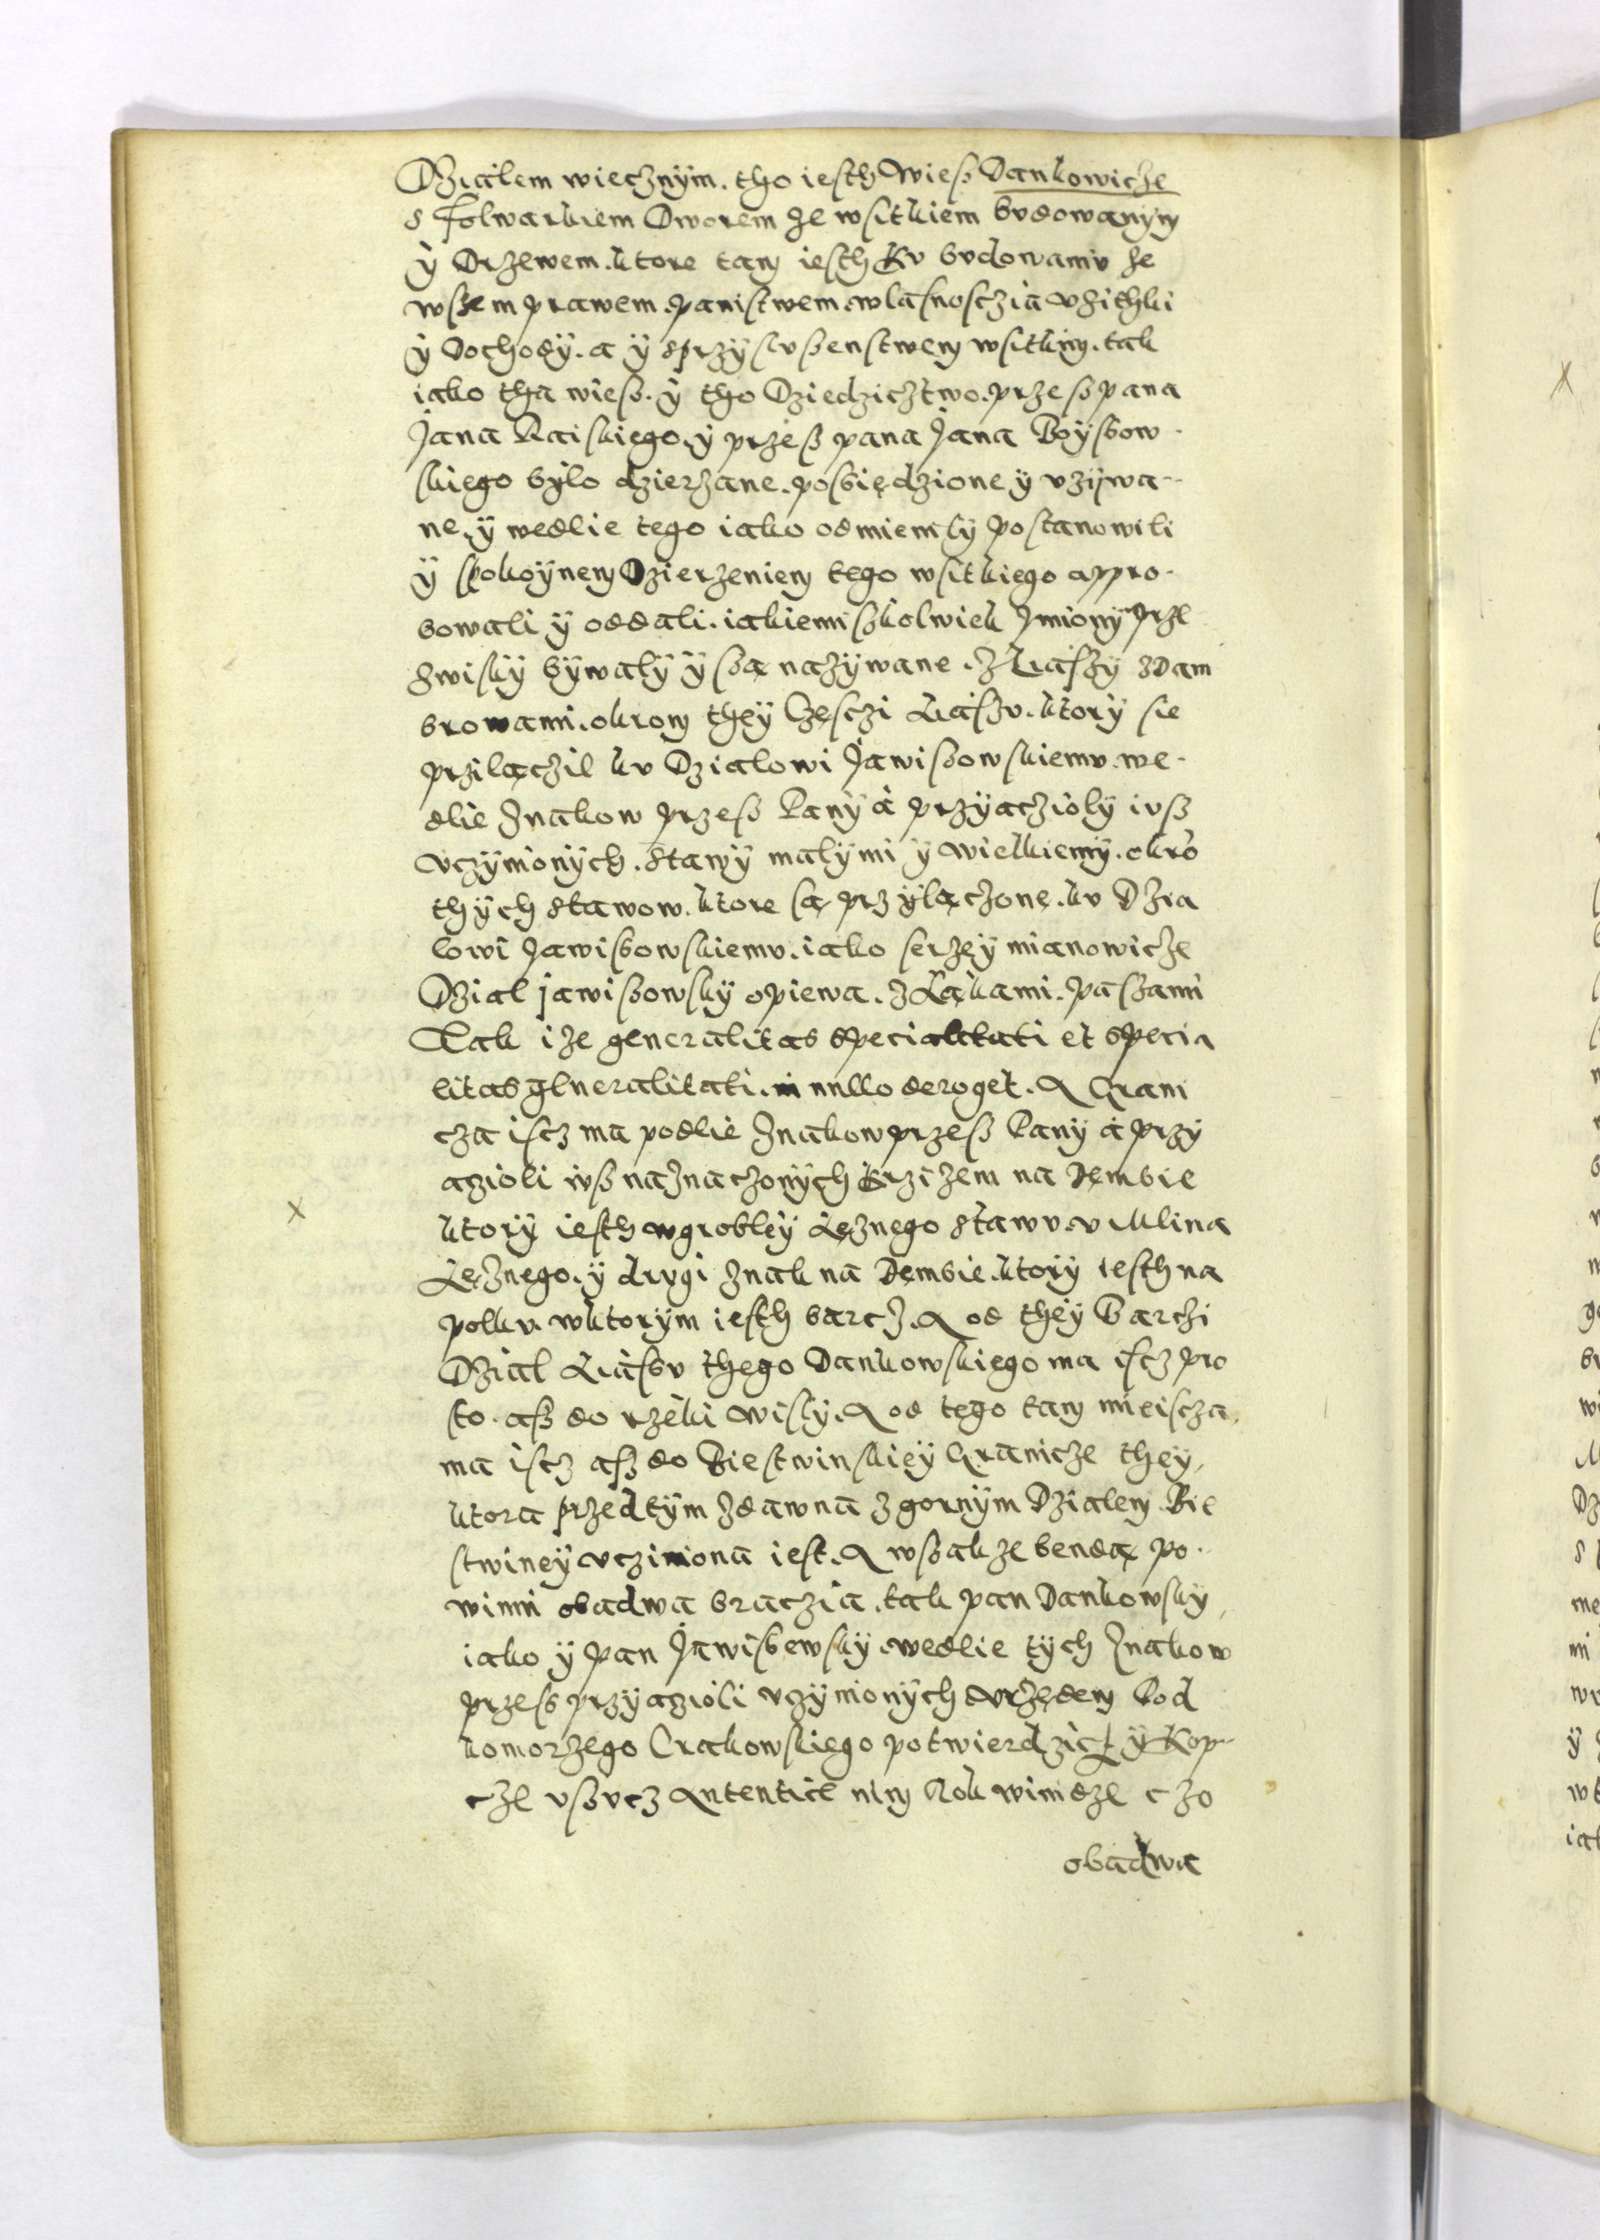 Dzialem wiecznÿm. tho iesth Wiesß Dankowicze
s folwarkiem Dworem ze wsitkiem budowanym
ÿ Drzewem. ktore tam iesth Ku budowaniu ze
wszem prawem. panistwem. wlasnosczia vzithki
ÿ Dochodÿ. a ÿ sprzÿslusßenstwem wsitkim. tak
iako tha wiesß. ÿ tho Dziedzicztwo. przesß pana
Jana Raiskiego. ÿ przesß pana Jana Boÿsßow-
skiego bÿlo dzierzane. posßiędzione ÿ vzÿwa-
ne. ÿ wedlie tego iako odmienilÿ postanowili
ÿ spokoÿnem Dzierzeniem tego wsitkiego appro-
bowali ÿ oddali. iakiemiszkolwiek Jmionÿ prze
zwiskÿ bÿwalÿ ÿ są nazÿwane. z Liaszÿ z Dam
browami. okrom theÿ Częsczi Liaszu. ktorÿ sie
przilączil ku Dzialowi Jawisßowskiemu. we-
dlie Znakow przesß Panÿ a przÿacziolÿ iusß
vczÿnionÿch. stawÿ malÿmi ÿ wielkiemÿ. okro
thÿch stawow. ktore są przÿlączone. ku Dzia
lowi Jawisßowskiemu. iako serzeÿ mianowicze
Dzial jawisßowskÿ opiewa. z Ląkami. paszami
Tak ize generalitas specialitati et specia
litas generalitati. in nullo deroget. A Grani
cza iscz ma podlie Znakow przesß Panÿ a przÿ
aczioli iusß naznaczonÿch Krzizem na Dembie
ktorÿ iesth w grobleÿ Lęznego stawu. v Mlina
Lęznego. ÿ drugi znak na Dembie. ktorÿ iesth na
polku. w ktorÿm iesth barcz. A od theÿ Barczi
Dzial Liasßu thego Dankowskiego ma iscz pro
sto. asß do rzeki Wislÿ. A od tego tam mieiscza,
ma iscz asß do Biestwinskieÿ Granicze theÿ,
ktora przedtÿm zdawna z gornÿm Dzialem Bie
stwineÿ vcziniona iest. A wsßakze bendą po-
winni obadwa braczia. tak pan Dankowskÿ,
iako ÿ pan Jawisßewskÿ. wedlie tÿch Znakow
przesß przÿaczioli vczÿnionÿch Vrzędem Pod
komorzego Crakowskiego potwierdzicz ÿ Kop-
cze vsßucz Autentice nim Rok winidze czo
obadwa